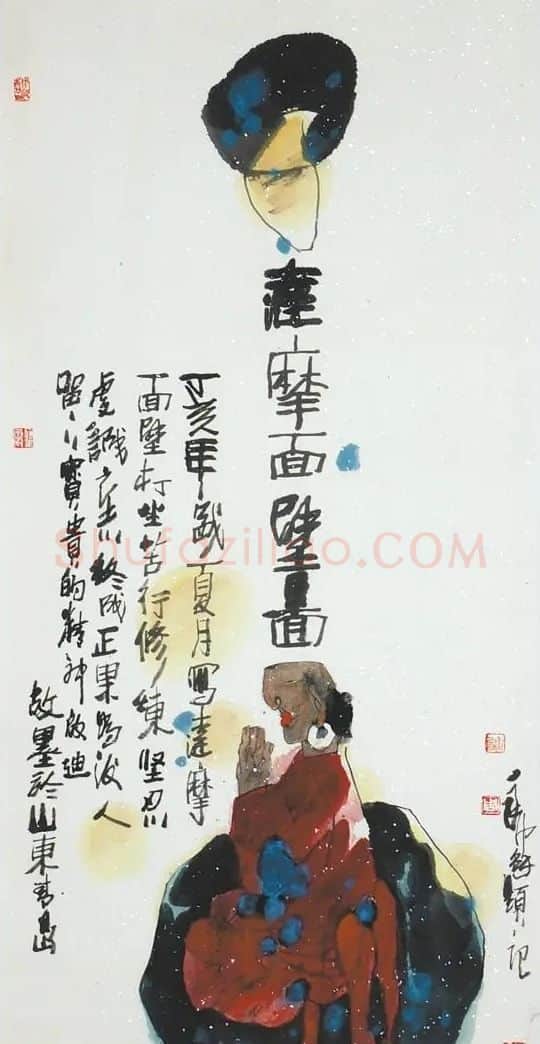 達摩面壁圖
丁亥年歲夏月寫達摩
面壁打坐苦行修練坚忍
虔誠終成正果為後人
留下寶貴的精神啟迪
墨於山東青島
題記
Shufaziliao.COM